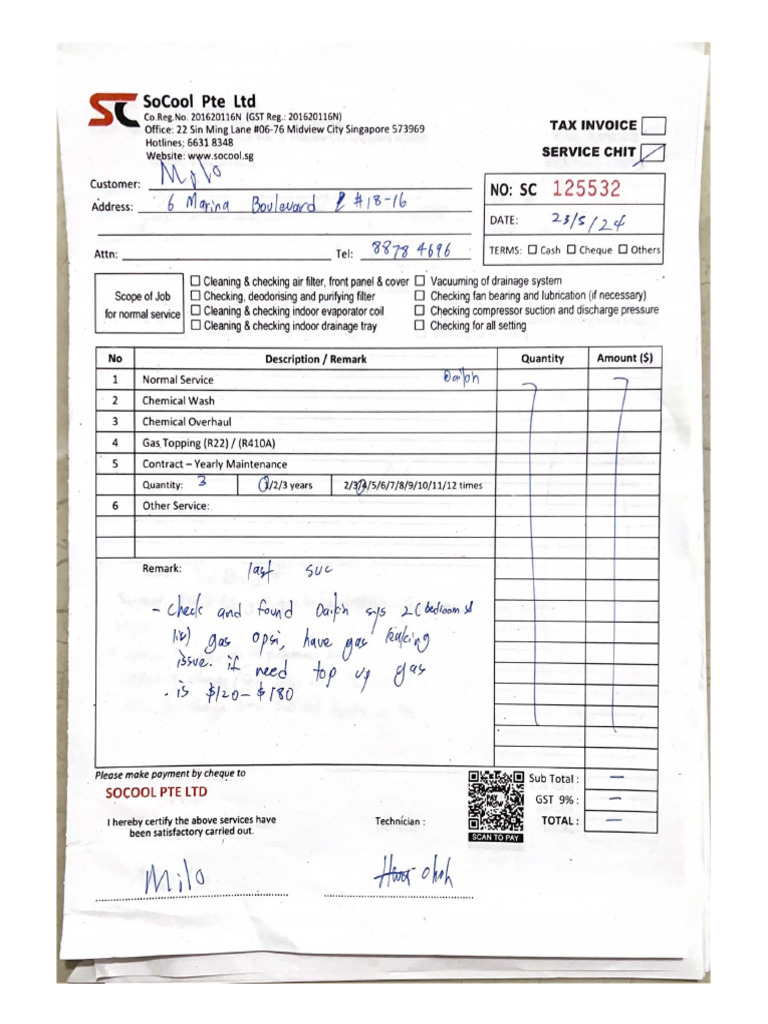 SoCool Pte Ltd
Co.Reg.No. 201620116N (GST Reg.: 201620116N)
Office: 22 Sin Ming Lane #06-76 Midview City Singapore 573969
Hotlines; 6631 8348
Website: www.socool.sg
TAX INVOICE
SERVICE CHIT
Customer: Milo
Address: 6 Marina Boulevard #18-16
NO: SC 125532
DATE: 23/5/24
Attn: Tel: 8878 4696
TERMS: Cash Cheque Others
Scope of Job
for normal service
Cleaning & checking air filter, front panel & cover
Checking, deodorising and purifying filter
Cleaning & checking indoor evaporator coil
Cleaning & checking indoor drainage tray
Vacuuming of drainage system
Checking fan bearing and lubrication (if necessary)
Checking compressor suction and discharge pressure
Checking for all setting
No Description / Remark Quantity Amount ($)
1 Normal Service
2 Chemical Wash
3 Chemical Overhaul
4 Gas Topping (R22) / (R410A)
5 Contract – Yearly Maintenance
Quantity: 3 1/2/3 years 2/3/4/5/6/7/8/9/10/11/12 times
6 Other Service:
Remark: last svc
- Check and found sys 2 (bedroom
gas 0psi, have gas leaking
issue. if need top up gas
. is $120-$180
Please make payment by cheque to
SOCOOL PTE LTD
I hereby certify the above services have
been satisfactory carried out.
Technician :
PAY NOW
SCAN TO PAY
Sub Total : —
GST 9% : —
TOTAL : —
Milo